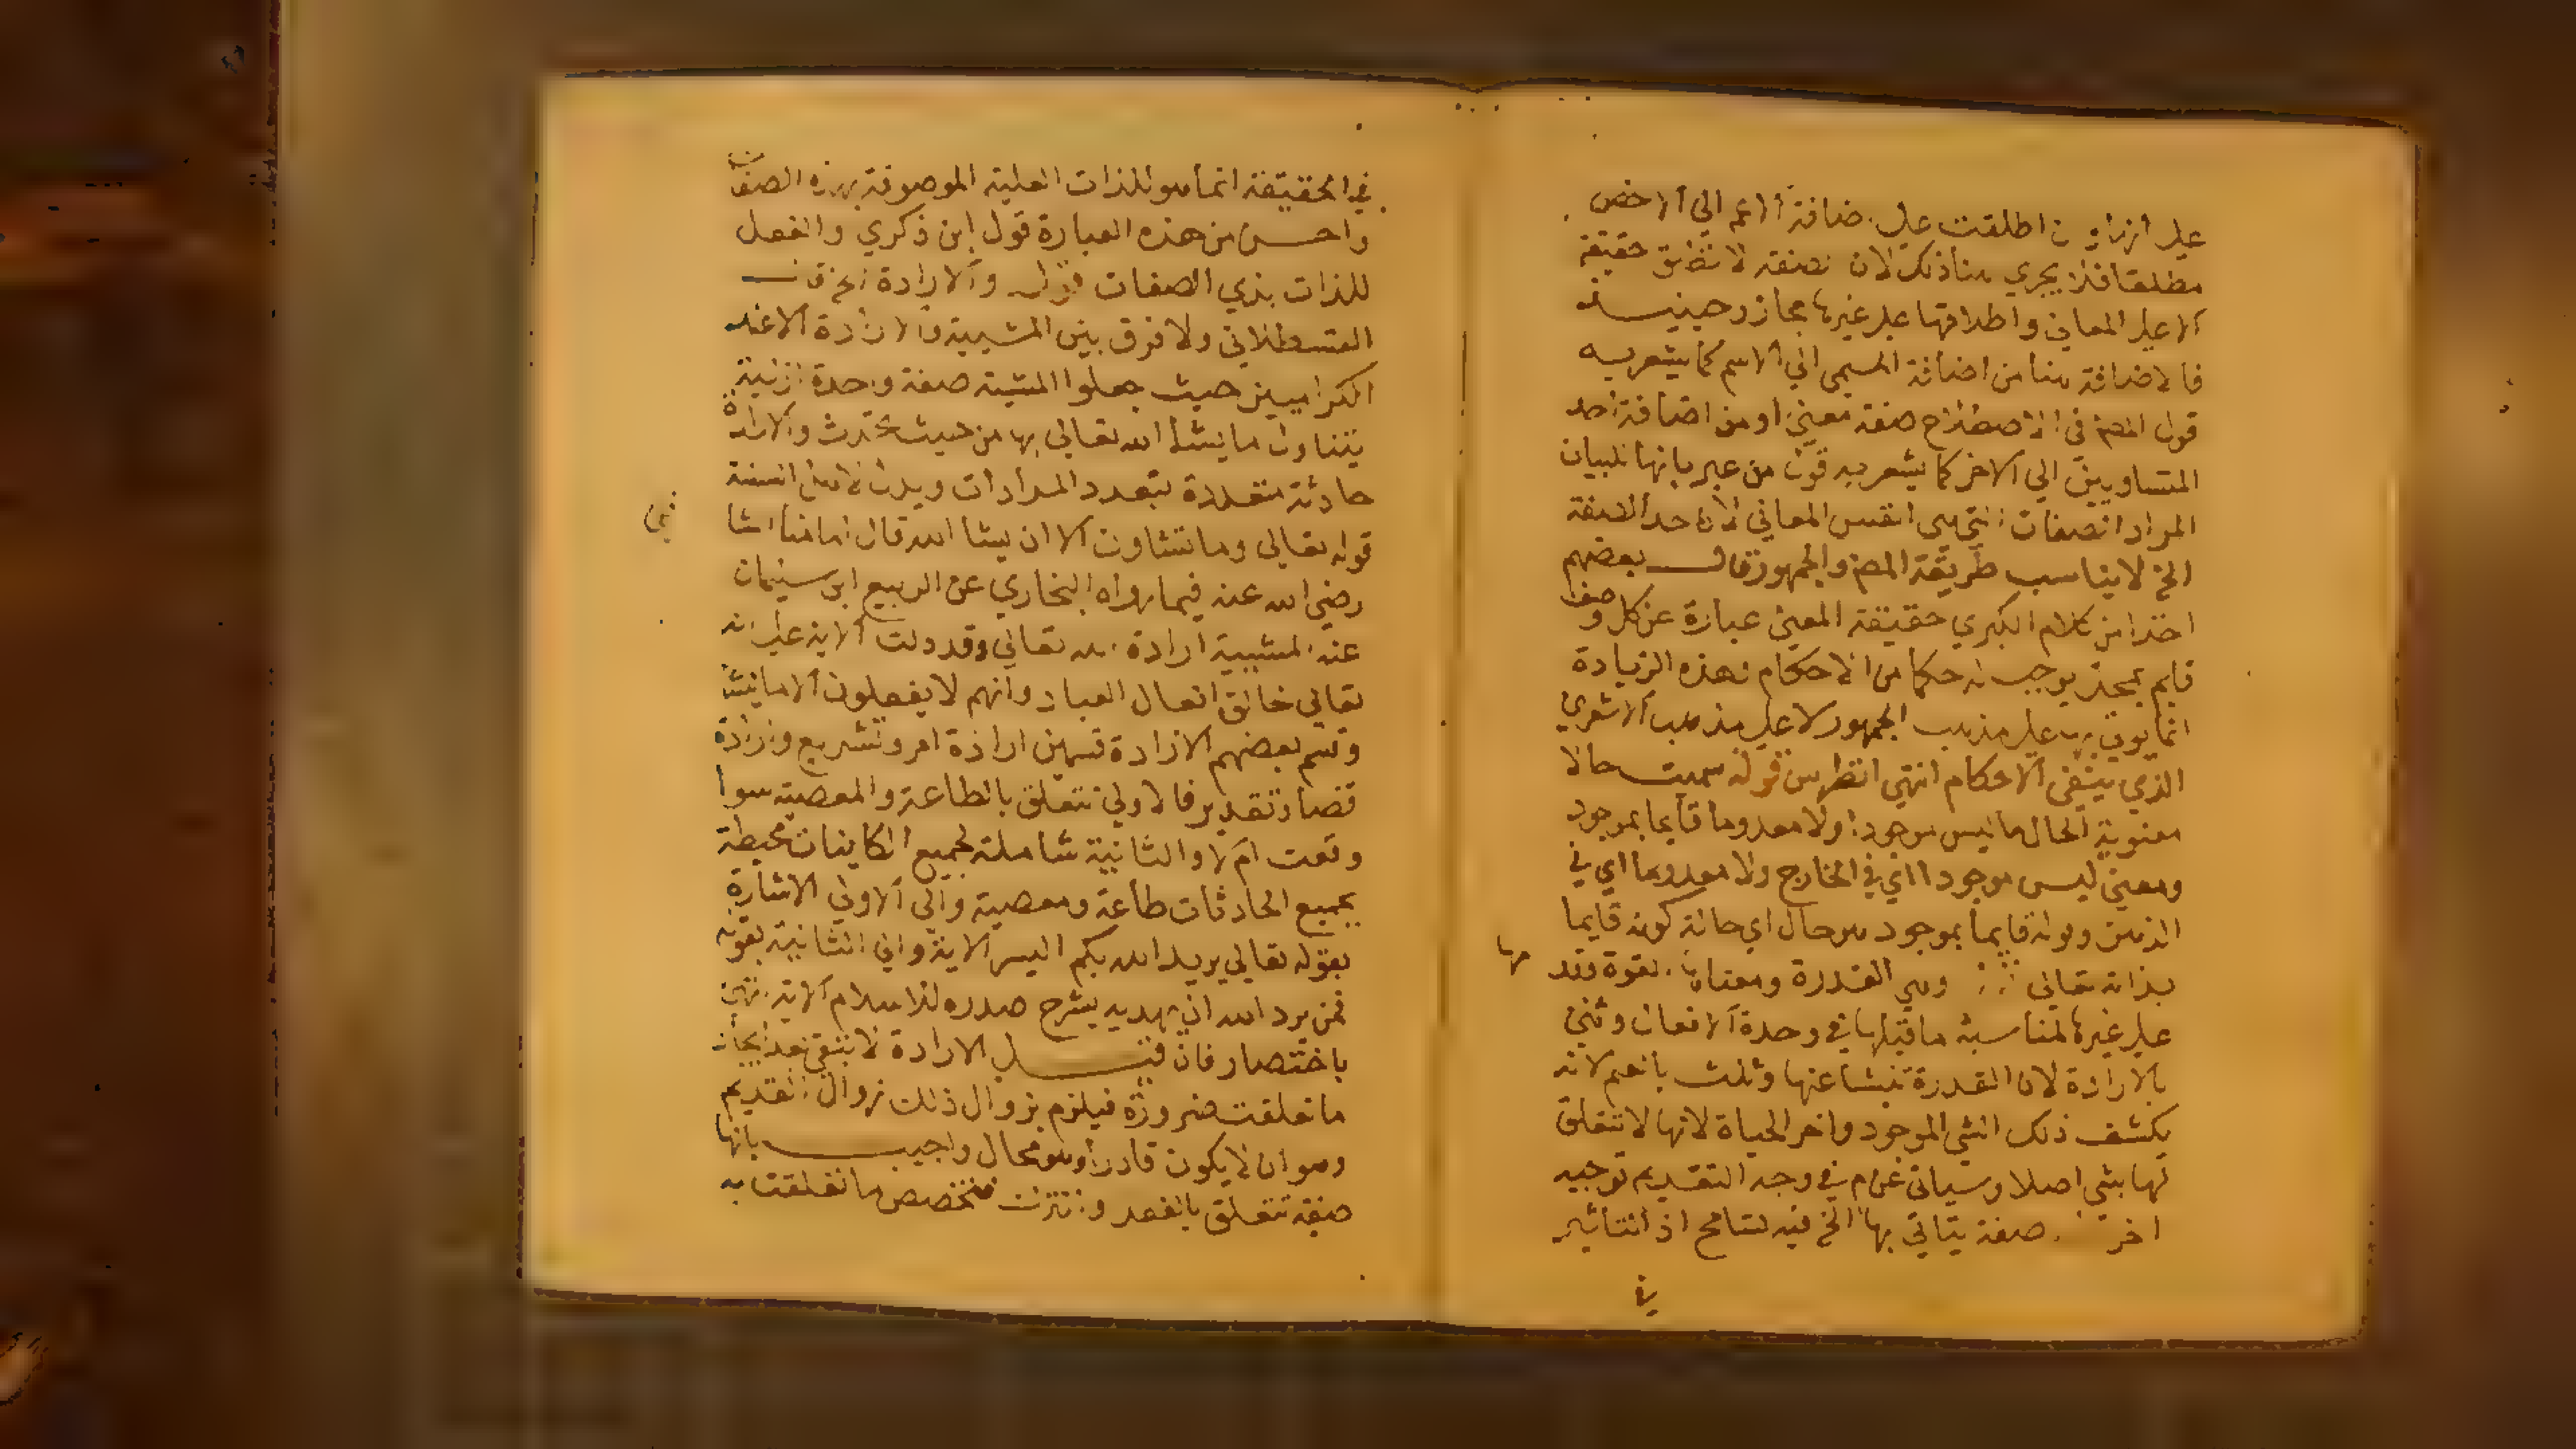 اطلقت على اضافة الاعم الى الاخص
مطلقا فلا يجري هنا ذلك لان الصفة لا تطلق حقيقة
الا على المعاني واطلاقها على غيرها مجاز وحينيـــذ
فالاضافة هنا من اضافة المسمى الي الاسم كما يشعر به
قول المص في الاصطلاح صفة معنى او من اضافة احد
المتساويين الي الاخر كما يشعر به قول من عبر بانها للبيان
المراد الصفات التي هي انفس المعاني لان احد الصفة
الخ لا يناسب طريقة المص والجمهور قال بعضهم
اخذا من كلام الكبري حقيقة المعنى عبارة عن كل وصف
قايم بمحل يوجب له حكما من الاحكام وهذه الزيادة
انما يوتي بها على مذهب الجمهور لا على مذهب الاشعري
الذي ينفي الاحكام انتهى انظر س قوله سميت حالا
معنوية الحال ما ليس موجودا ولا معدوما قايما بموجود
ومعنى ليس موجودا اي في الخارج ولا معدوما اي في
الذهن وقوله قايما بموجود هو حال اي حالة كونه قايما
بذاته تعالى وهي القدرة ومعناه القوة وقد
مها
على غيرها لمناسبة ما قبلها في وحدة الافعال وثني
بالارادة لان القدرة تنشا عنها وثلث بالعلم لانه
يكشف ذلك الشي الموجود واخر الحياة لانها لا تتعلق
لها بشي اصلا وسياتي عن م في وجه التقديم توجيه
اخر صفة يتاتي بها الخ فيه تسامح اذ التاثير
في
في الحقيقة انما هو للذات العلية الموصوفة بهذه الصفات
واحسن من هذه العبارة قول ابن ذكري والفعل
للذات بذي الصفات قوله والارادة الخ قال
القسطلاني ولا فرق بين المشيية والارادة الا عند
الكراميين حيث جعلوا المشية صفة واحدة ازلية
يتناول ما يشا الله تعالى بها من حيث تحدث والارادة
حادثة متعددة بتعدد المرادات ويدل لاهل السنة
قوله تعالى وما تشاون الا ان يشا الله قال امامنا الشا
فعي
رضي الله عنه فيما رواه البخاري عن الربيع ابن سليمان
عنه المشيية ارادة الله تعالى وقد دلت الاية على انه
تعالى خالق افعال العباد وانهم لا يفعلون الا ما يشا
وقسم بعضهم الارادة قسمين ارادة امر وتشريع وارادة
قضا وتقدير فالاولى تتعلق بالطاعة والمعصية سوا
وقعت ام لا والثانية شاملة لجميع الكاينات محيطة
بجميع الحادثات طاعة ومعصية والى الاولى الاشارة
بقوله تعالى يريد الله بكم اليسر الاية والى الثانية بقوله
فمن يرد الله ان يهديه يشرح صدره للاسلام الاية انتهى
باختصار فان قيـــل الارادة لا تبقى بعد ايجاد
ما تعلقت ضرورة فيلزم بزوال ذلك زوال القديم
وهو ان لا يكون قادرا وهو محال واجيب بانها
صفة تتعلق بالفعل والترك فتخصص ما تعلقت به